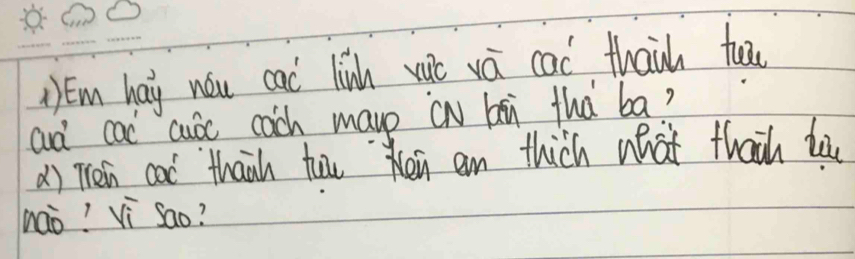 1) Em hãy nêu các lĩnh vực và các thành tựu
của các cuộc cách mạng CN lần thứ ba?
2) Trên các thành tựu trên em thích nhất thành tựu
nào? Vì sao?